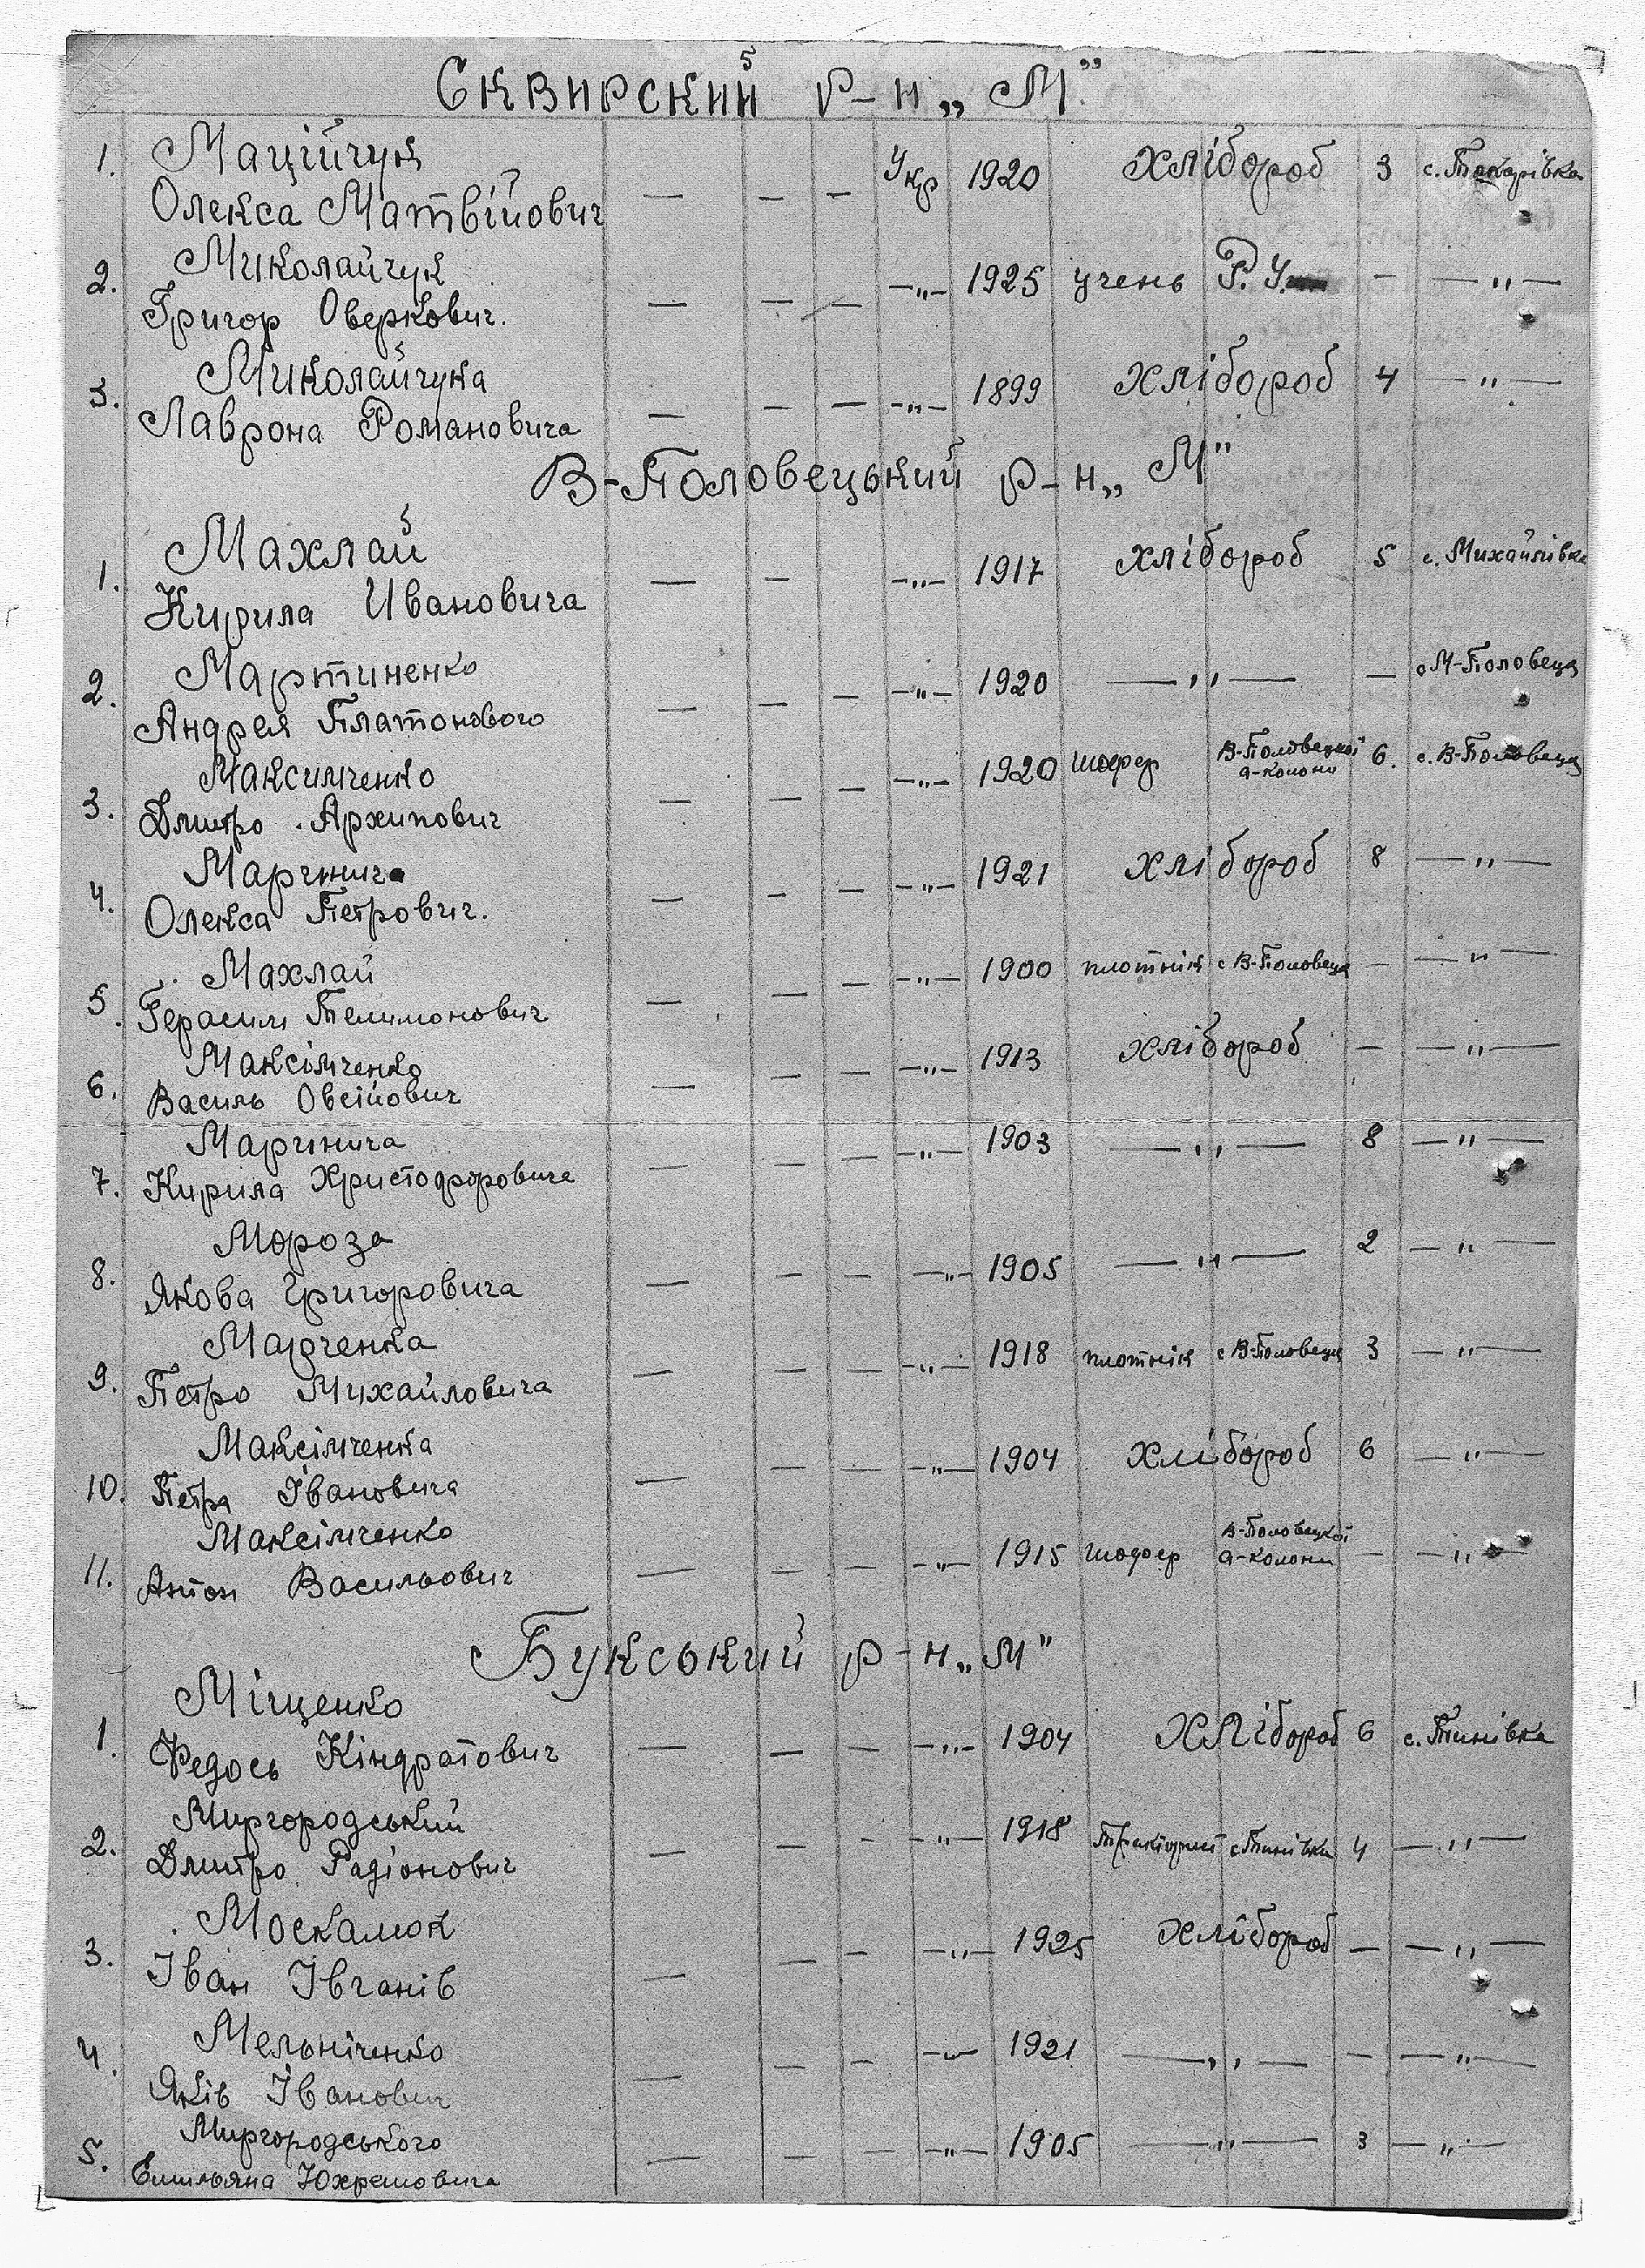 Сквирский р-н „М"
1. Маційчук
Олекса Матвійович — — — Укр 1920 хлібороб 3 с. Токарівка
2. Миколайчук
Григор Оверкович. — — — —„— 1925 учень Р.У. — —„—
3. Миколайчука
Лаврона Романовича — — — —„— 1899 хлібороб 4 —„—
В-Половецький р-н „М"
1. Махлай
Кирила Ивановича — — —„— 1917 хлібороб 5 с. Михайлівка
2. Мартиненко
Андрея Платонового — — — —„— 1920 —„— — с М-Половецк
3. Максимченко
Дмитро Архипович — — — —„— 1920 шофер В-Половецкої а-колони 6. с. В-Половецк
4. Маринич
Олекса Петрович. — — — —„— 1921 хлібороб 8 —„—
5. Махлай
Герасим Телимонович — — — —„— 1900 плотнік с В-Половецк — —„—
6. Максімченко
Василь Овсійович — — — —„— 1913 хлібороб — —„—
7. Маринича
Кирила Христофоровича — — — —„— 1903 —„— 8 —„—
8. Мороза
Якова Григоровича — — — —„— 1905 —„— 2 —„—
9. Марченка
Петро Михайловича — — — —„— 1918 плотнік с В-Половецк 3 —„—
10. Максімченка
Петра Івановича — — — —„— 1904 хлібороб 6 —„—
11. Максімченко
Антон Васильович — — — —„— 1915 шофер В-Половецкої а-колони — —„—
Букський р-н „М"
1. Міщенко
Федось Кіндратович — — — —„— 1904 хлібороб 6 с. Тинівка
2. Миргородський
Дмитро Радіонович — — — —„— 1918 с Тинівки 4 —„—
3. Москалюк
Іван Івганів — — — —„— 1925 хлібороб — —„—
4. Мельніченко
Яків Іванович — — — —„— 1921 —„— — —„—
5. Миргородського
Емильяна Юхремовича — — — —„— 1905 —„— 3 —„—